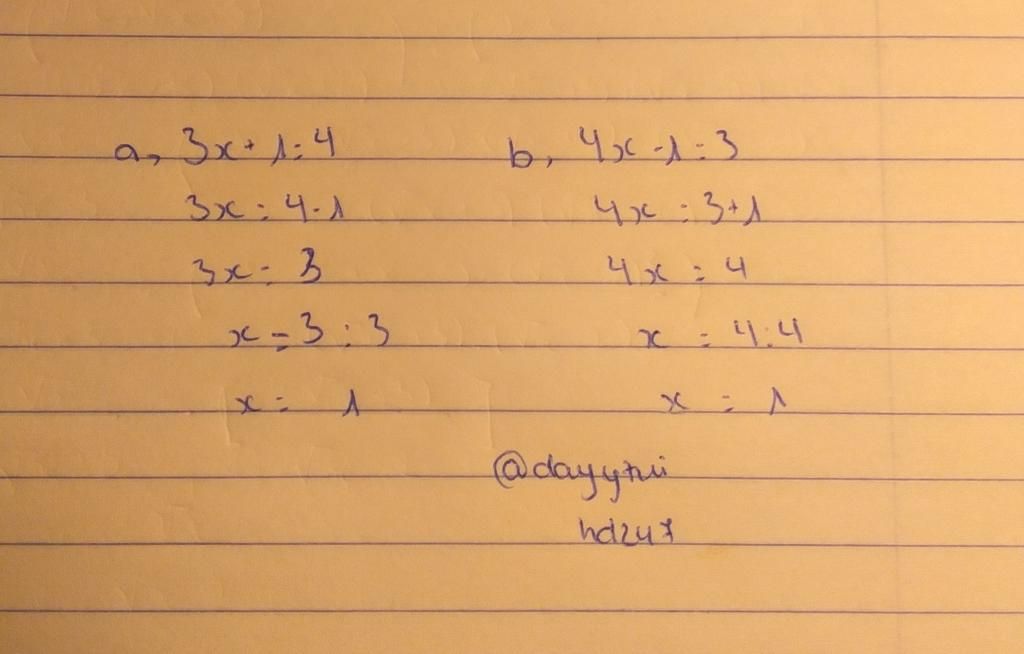 a, 3x + 1 = 4
3x = 4 - 1
3x = 3
x = 3 : 3
x = 1
b, 4x - 1 = 3
4x = 3 + 1
4x = 4
x = 4 : 4
x = 1
hd247